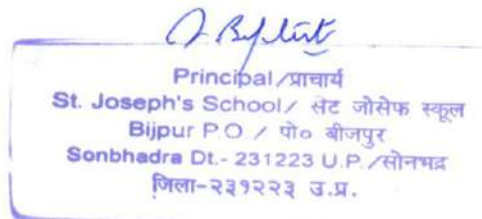 Principal/प्राचार्य
St. Joseph's School/ सेंट जोसेफ स्कूल
Bijpur P.O./ पो० बीजपुर
Sonbhadra Dt.- 231223 U.P./सोनभद्र
जिला-२३१२२३ उ.प्र.